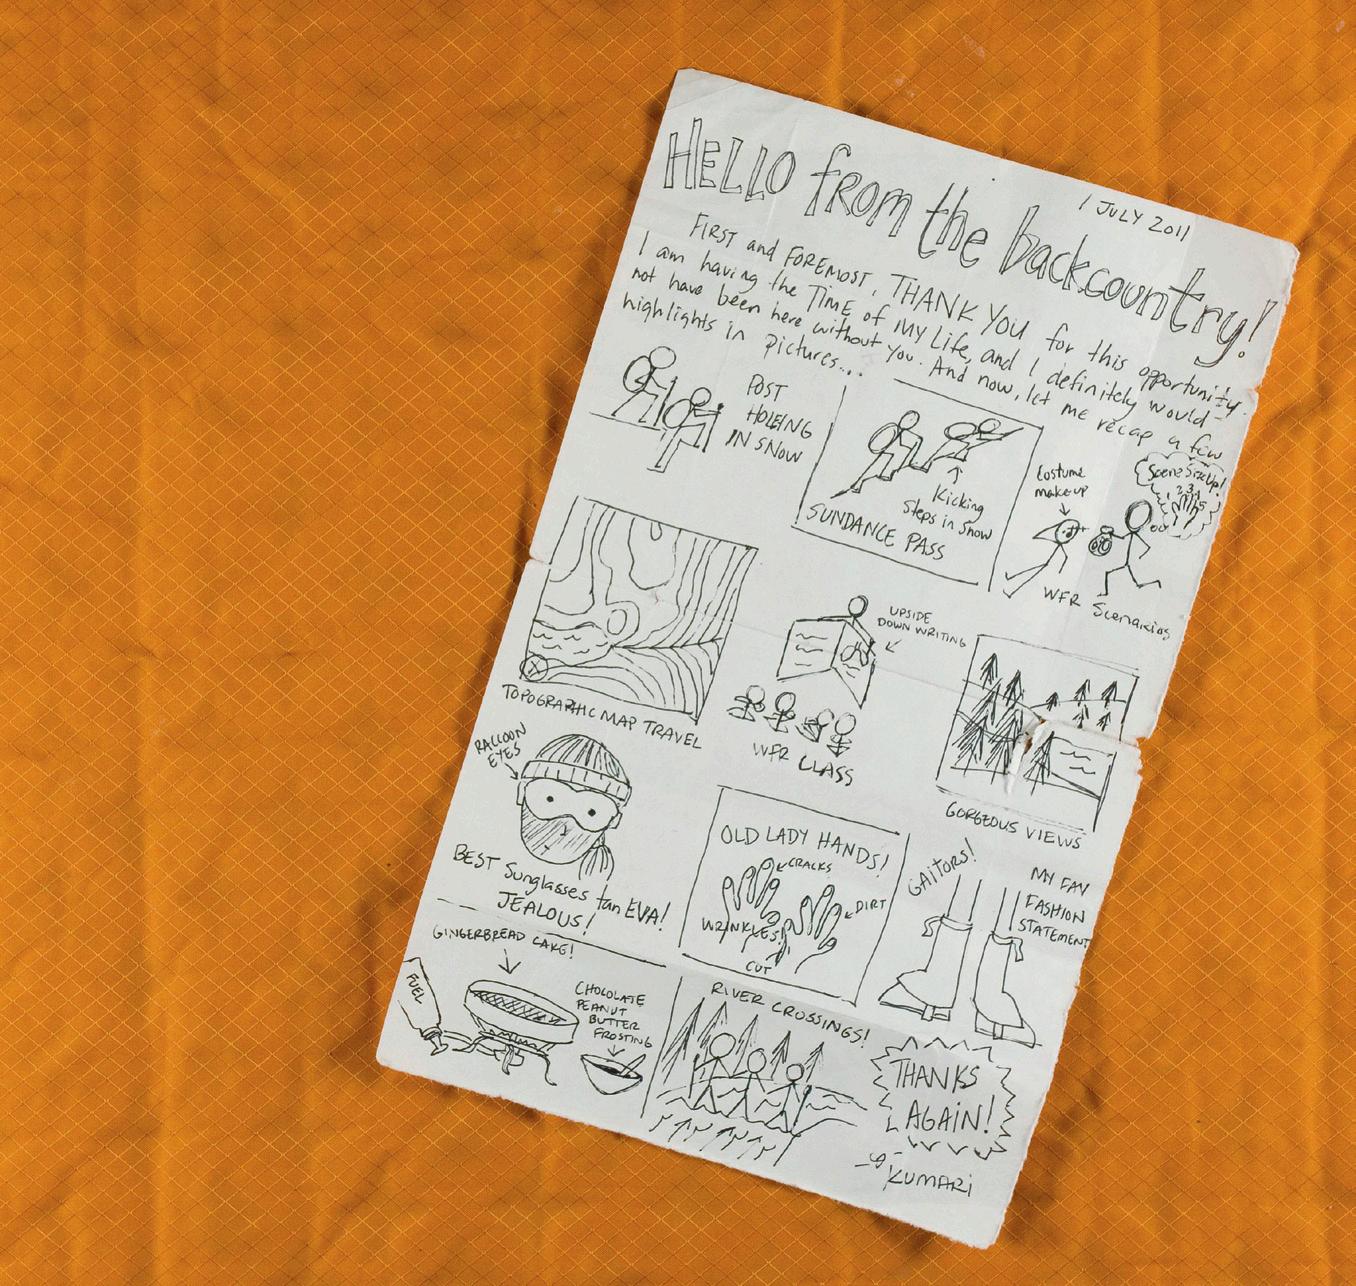 1 JULY 2011
HELLO from the backcountry!
FIRST and FOREMOST, THANK YOU for this opportunity.
I am having the TIME of MY Life, and I definitely would-
not have been here without you. And now, let me recap a few
highlights in pictures...
POST
HOLEING
IN SNOW
Kicking
Steps in snow
SUNDANCE PASS
Costume
makeup
Scene Size Up!
WFR Scenarios
TOPOGRAPHIC MAP TRAVEL
UPSIDE
DOWN WRITING
WFR CLASS
GORGEOUS VIEWS
RACCOON
EYES
BEST Sunglasses tan EVA!
JEALOUS!
OLD LADY HANDS!
CRACKS
DIRT
WRINKLES!
CUT
GAITORS!
MY FAV
FASHION
STATEMENT
GINGERBREAD CAKE!
FUEL
CHOCOLATE
PEANUT
BUTTER
FROSTING
RIVER CROSSINGS!
THANKS
AGAIN!
KUMARI